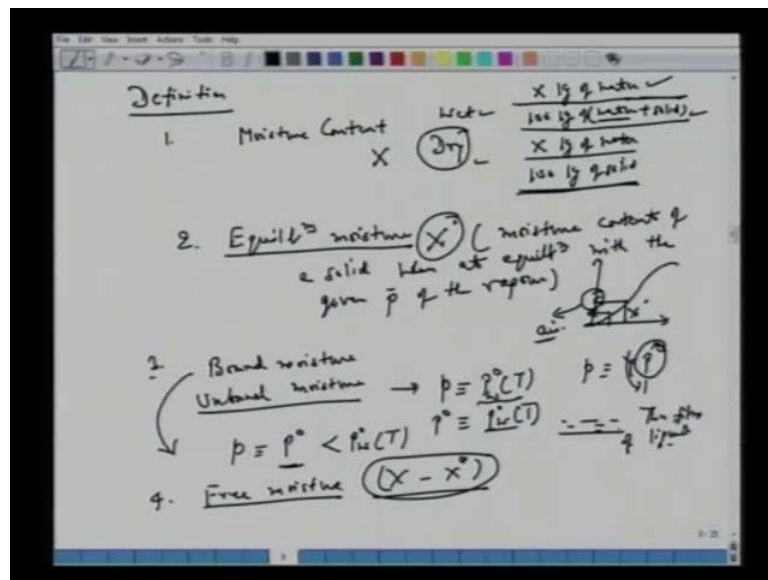 File Edit View Insert Actions Tools Help
Definition
1. Moisture Content wet X kg of water
100 kg of (water + solid)
X Dry X kg of water
100 kg of solid
2. Equilbm moisture X* ( moisture content of
a solid when at equilbm with the
given p̄ of the vapour)
air. X*
3. Bound moisture
Unbound moisture → p ≡ (T) p ≡ p*
p ≡ p* < (T) p* ≡ (T) Thin film
of liquid
4. Free moisture (X - X*)